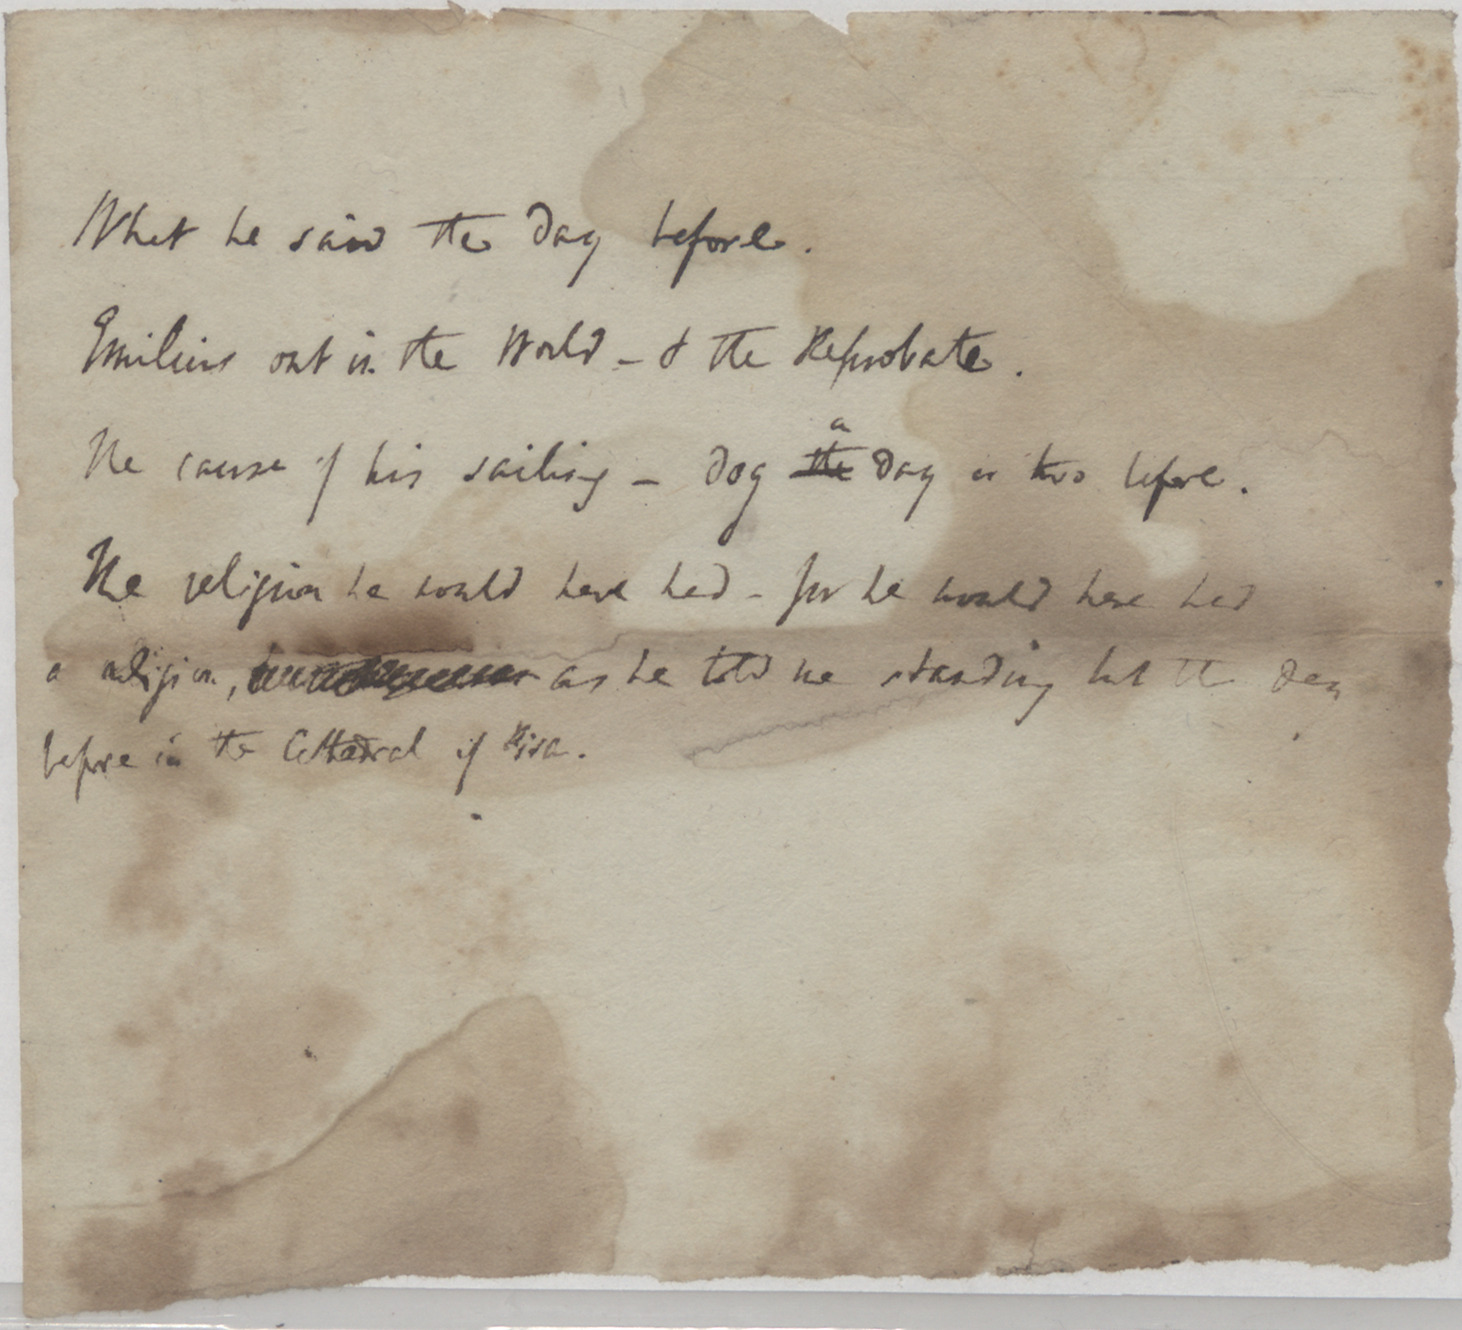 What he said the day before.
Emilius out in the World – & the Reprobate.
The cause of his sailing – Dog the a day or two before.
The religion he would have had – for he would have had
a religion, as he told me standing but the day
before in the Cathedral of Pisa.